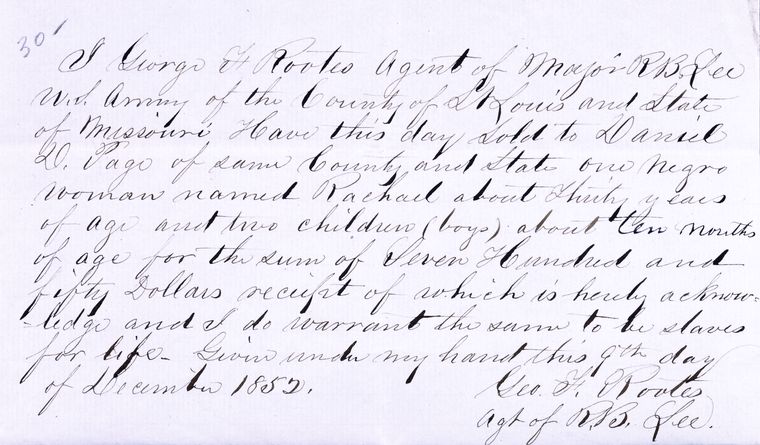 30
I George F Rootes Agent of Major R.B. Lee
U.S. Army of the County of St Louis and State
of Missouri Have this day Sold to Daniel
D. Page of same County and State one negro
woman named Rachael about Thirty years
of age and two children (boys) about ten months
of age for the sum of Seven Hundred and
fifty Dollars receipt of which is hereby acknow-
-ledge and I do warrant the same to be slaves
for life - Given under my hand this 9th day
of December 1852.
Geo. F. Rootes
Agt of R.B. Lee.